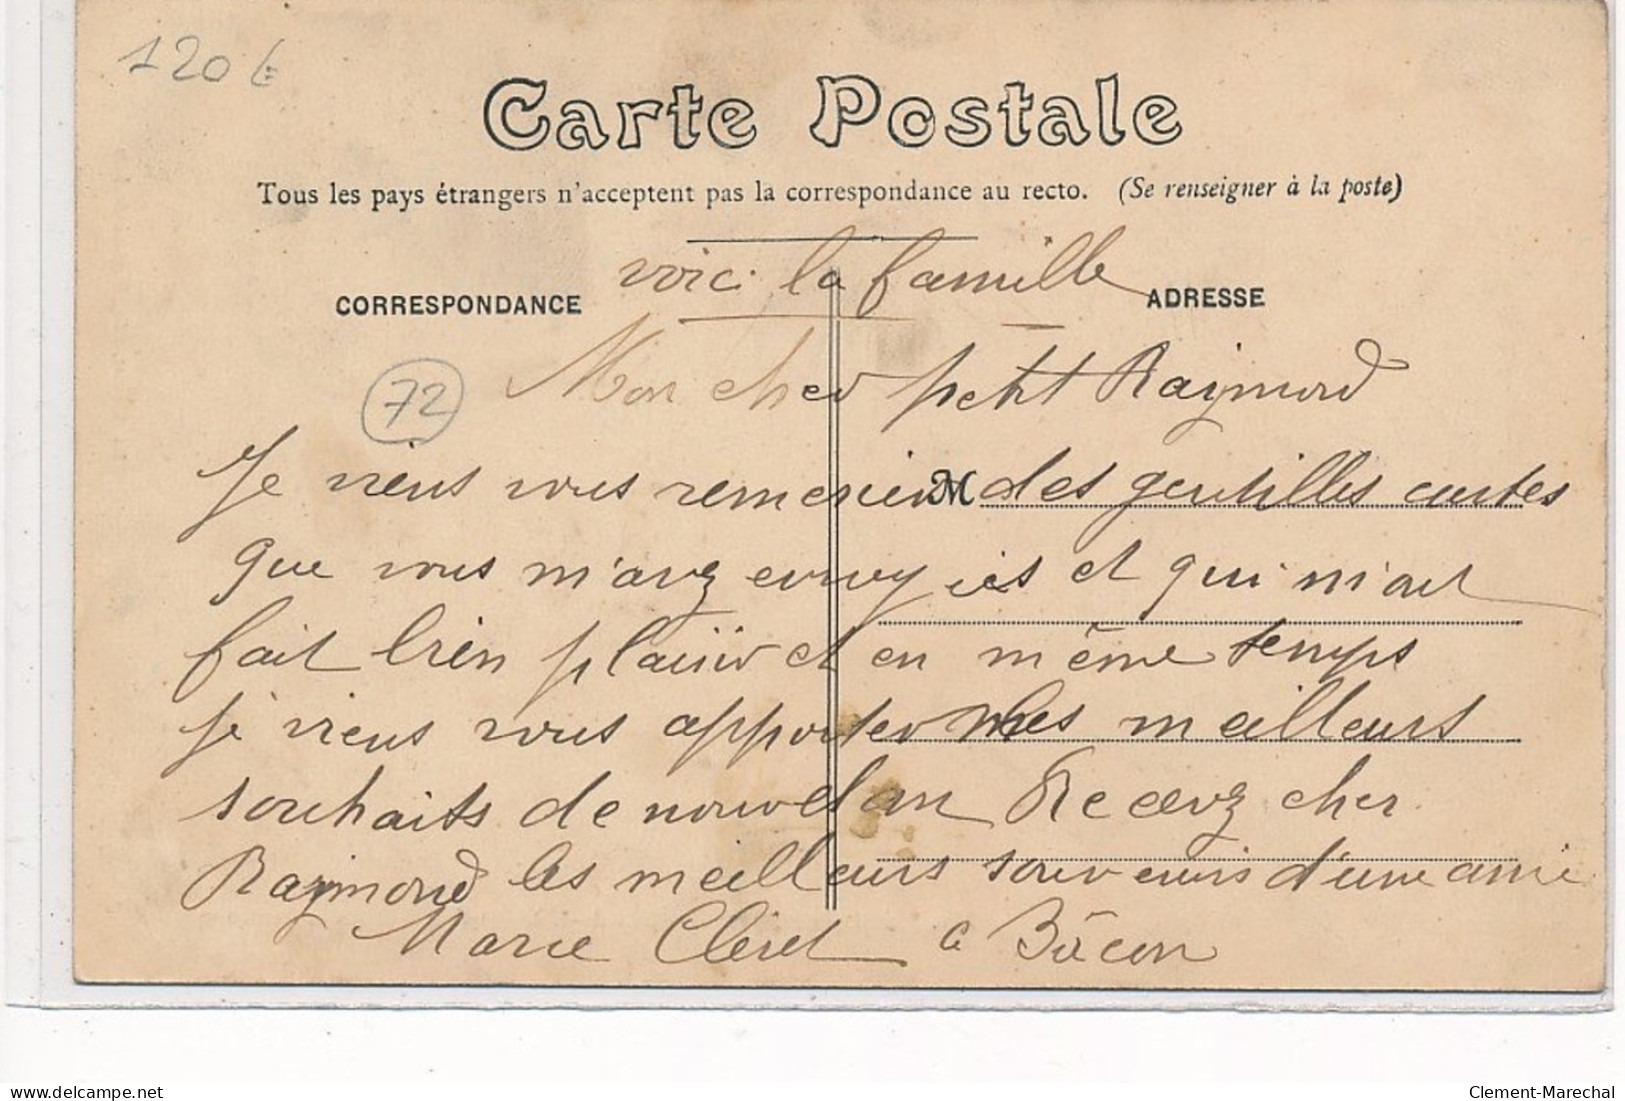 120 €
Carte Postale
Tous les pays étrangers n'acceptent pas la correspondance au recto. (Se renseigner à la poste)
voici la famille
CORRESPONDANCE
ADRESSE
72
Mon cher petit Raymond
Je viens vous remercier M des gentilles cartes
que vous m'avez envoyiés et qui m'ont
fait bien plaisir et en même temps
je viens vous apporter mes meilleurs
souhaits de nouvel an Recevez cher
Raymond les meilleurs souvenirs d'une amie
Marie Cléret a Bâcon
delcampe.net
Clement-Marechal